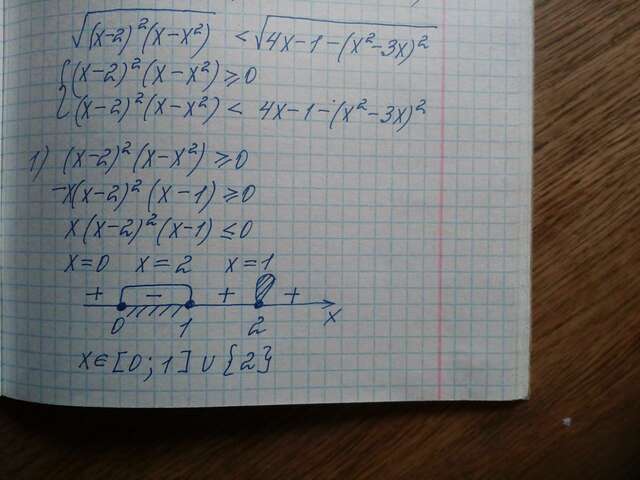 √(x-2)²(x-x²) < √4x-1-(x²-3x)²
{(x-2)²(x-x²) ⩾ 0
(x-2)²(x-x²) < 4x-1-(x²-3x)²
1) (x-2)²(x-x²) ⩾ 0
-x(x-2)²(x-1) ⩾ 0
x(x-2)²(x-1) ≤ 0
x=0 x=2 x=1
+ - + +
0 1 2 x
x∈[0;1]∪{2}